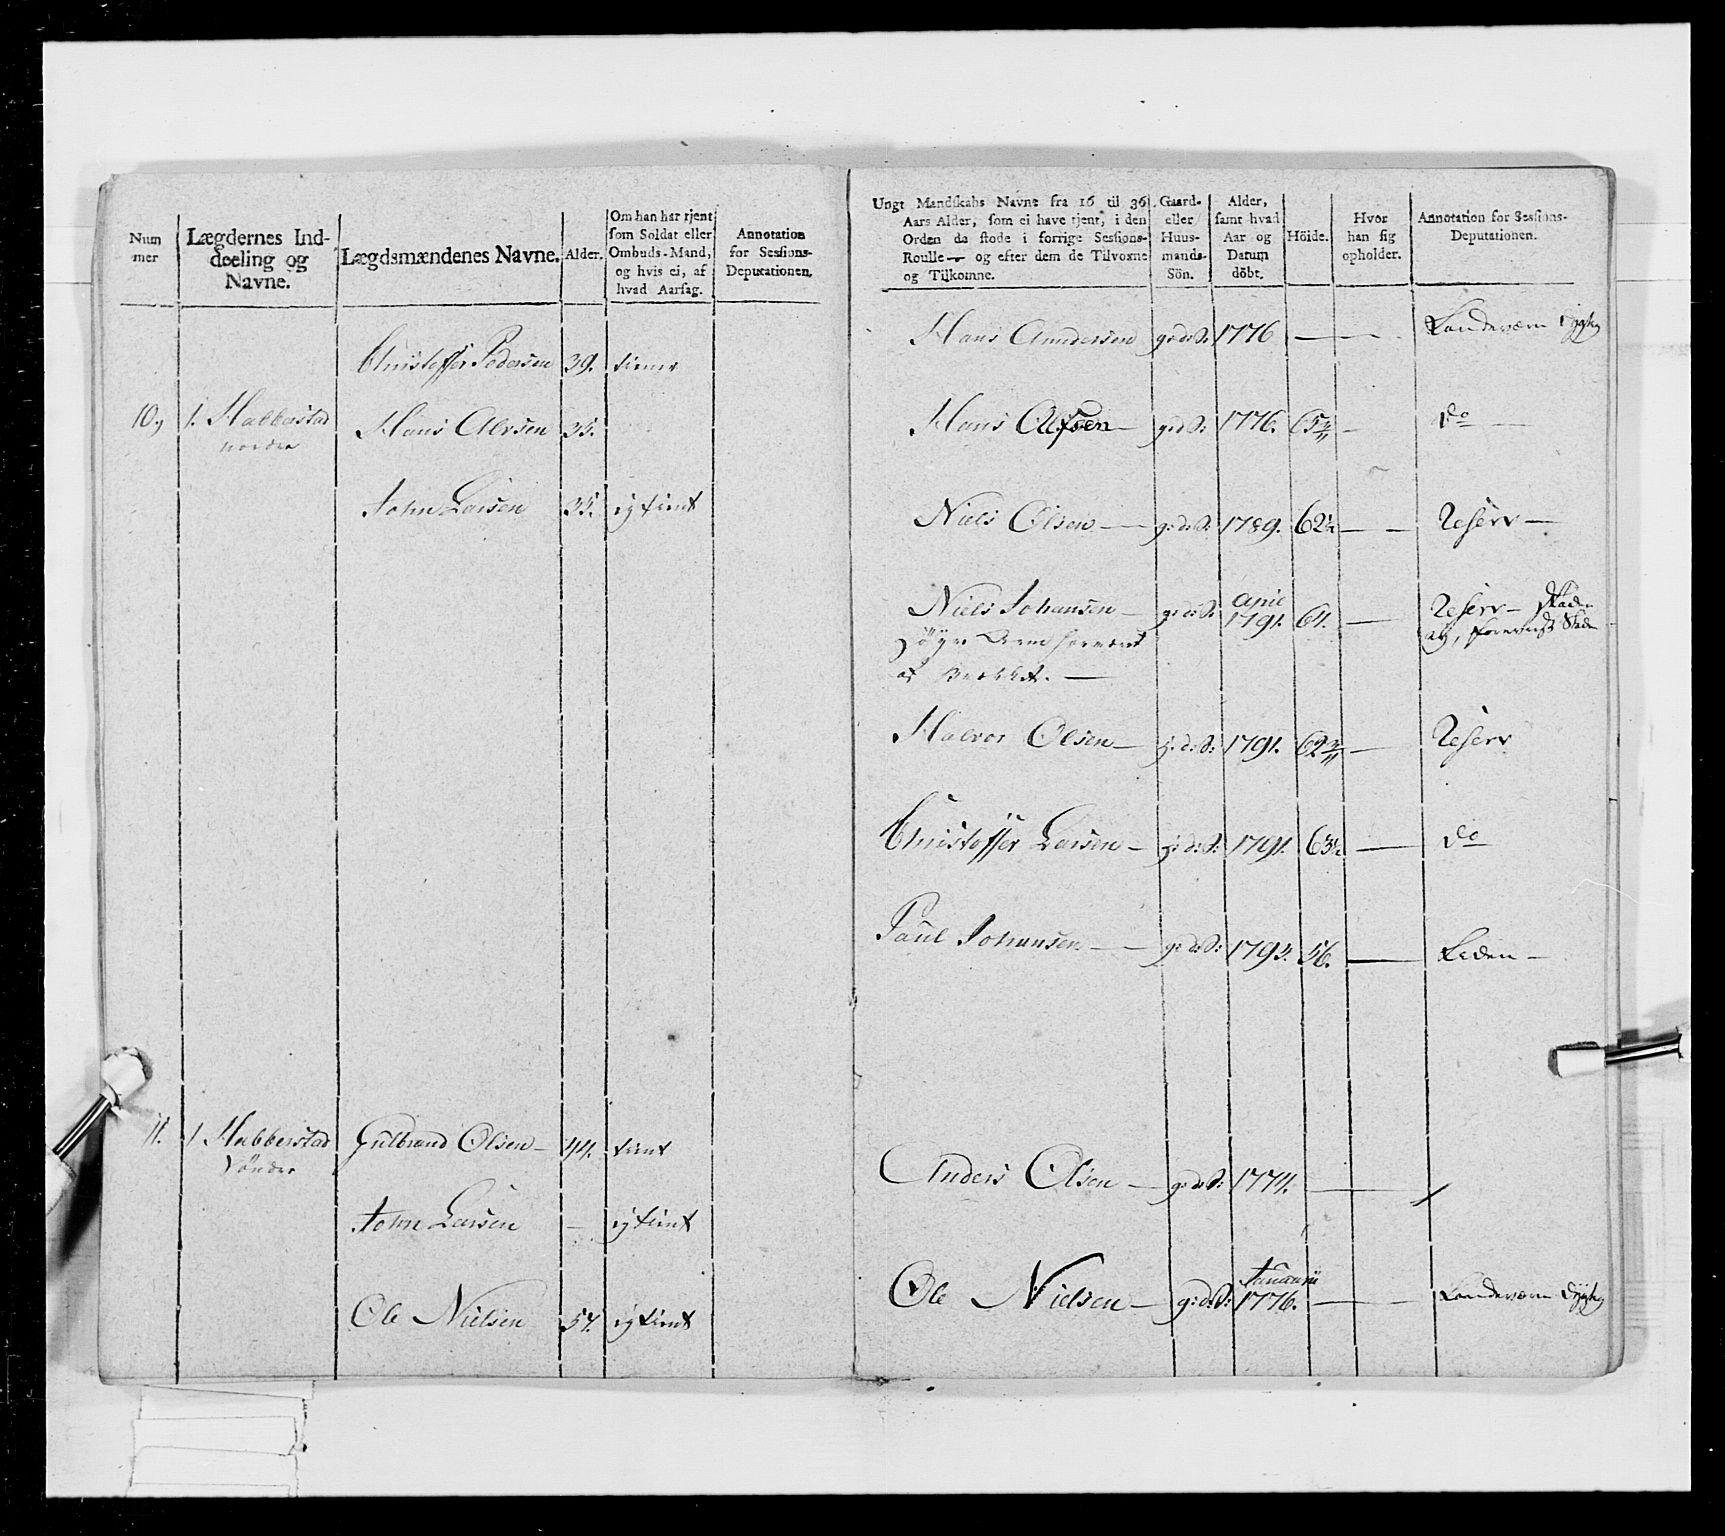 Num
mer
Lægdernes Ind-
deeling og
Navne.
Lægdsmændenes Navne.
Alder.
Om han har tjent
som Soldat eller
Ombuds-Mand,
og hvis ei, af
hvad Aarsag.
Annotation
for Sessions-
Deputationen.
Christoffer Pedersen 39. tiener
10, 1. Habberstad Hans Alvsen 35.
nordre
John Larsen 35. ej tient
11. 1 Habberstad Gulbrand Olsen - 44. tient
Sønder
John Larsen - ej tient
Ole Nielsen 57. ej tient
Ungt Mandskabs Navne fra 16 til 36
Aars Alder, som ei have tjent, i den
Orden da stode i forrige Sessions-
Roulle — og efter dem de Tilvoxne
og Tilkomne.
Gaard-
eller
Huus-
mands-
Sön.
Alder,
samt hvad
Aar og
Datum
döbt.
Höide.
Hvor
han sig
opholder.
Annotation for Sessions-
Deputationen.
Hans Amundersen g:d:S: 1776 — Landeværn dygtig
Hans Olfsen — g:d:S: 1776. 65 3/4 — do
Niels Olsen — g:d:S: 1789. 62 1/2 — Reserv —
April
Niels Johansen — g:d:S: 1791. 64. — Reserv —
høyre Arm
Halvor Olsen — g:d:S: 1791. 62 3/4 — Reserv
Christoffer Larsen — g:d:S: 1791. 63 1/2 — do
Paul Johansen — g:d:S: 1793. 56. — Liden —
Anders Olsen — g:d:S: 1774. —
Januarii
Ole Nielsen — g:d:S: 1776. — Landeværn dygtig